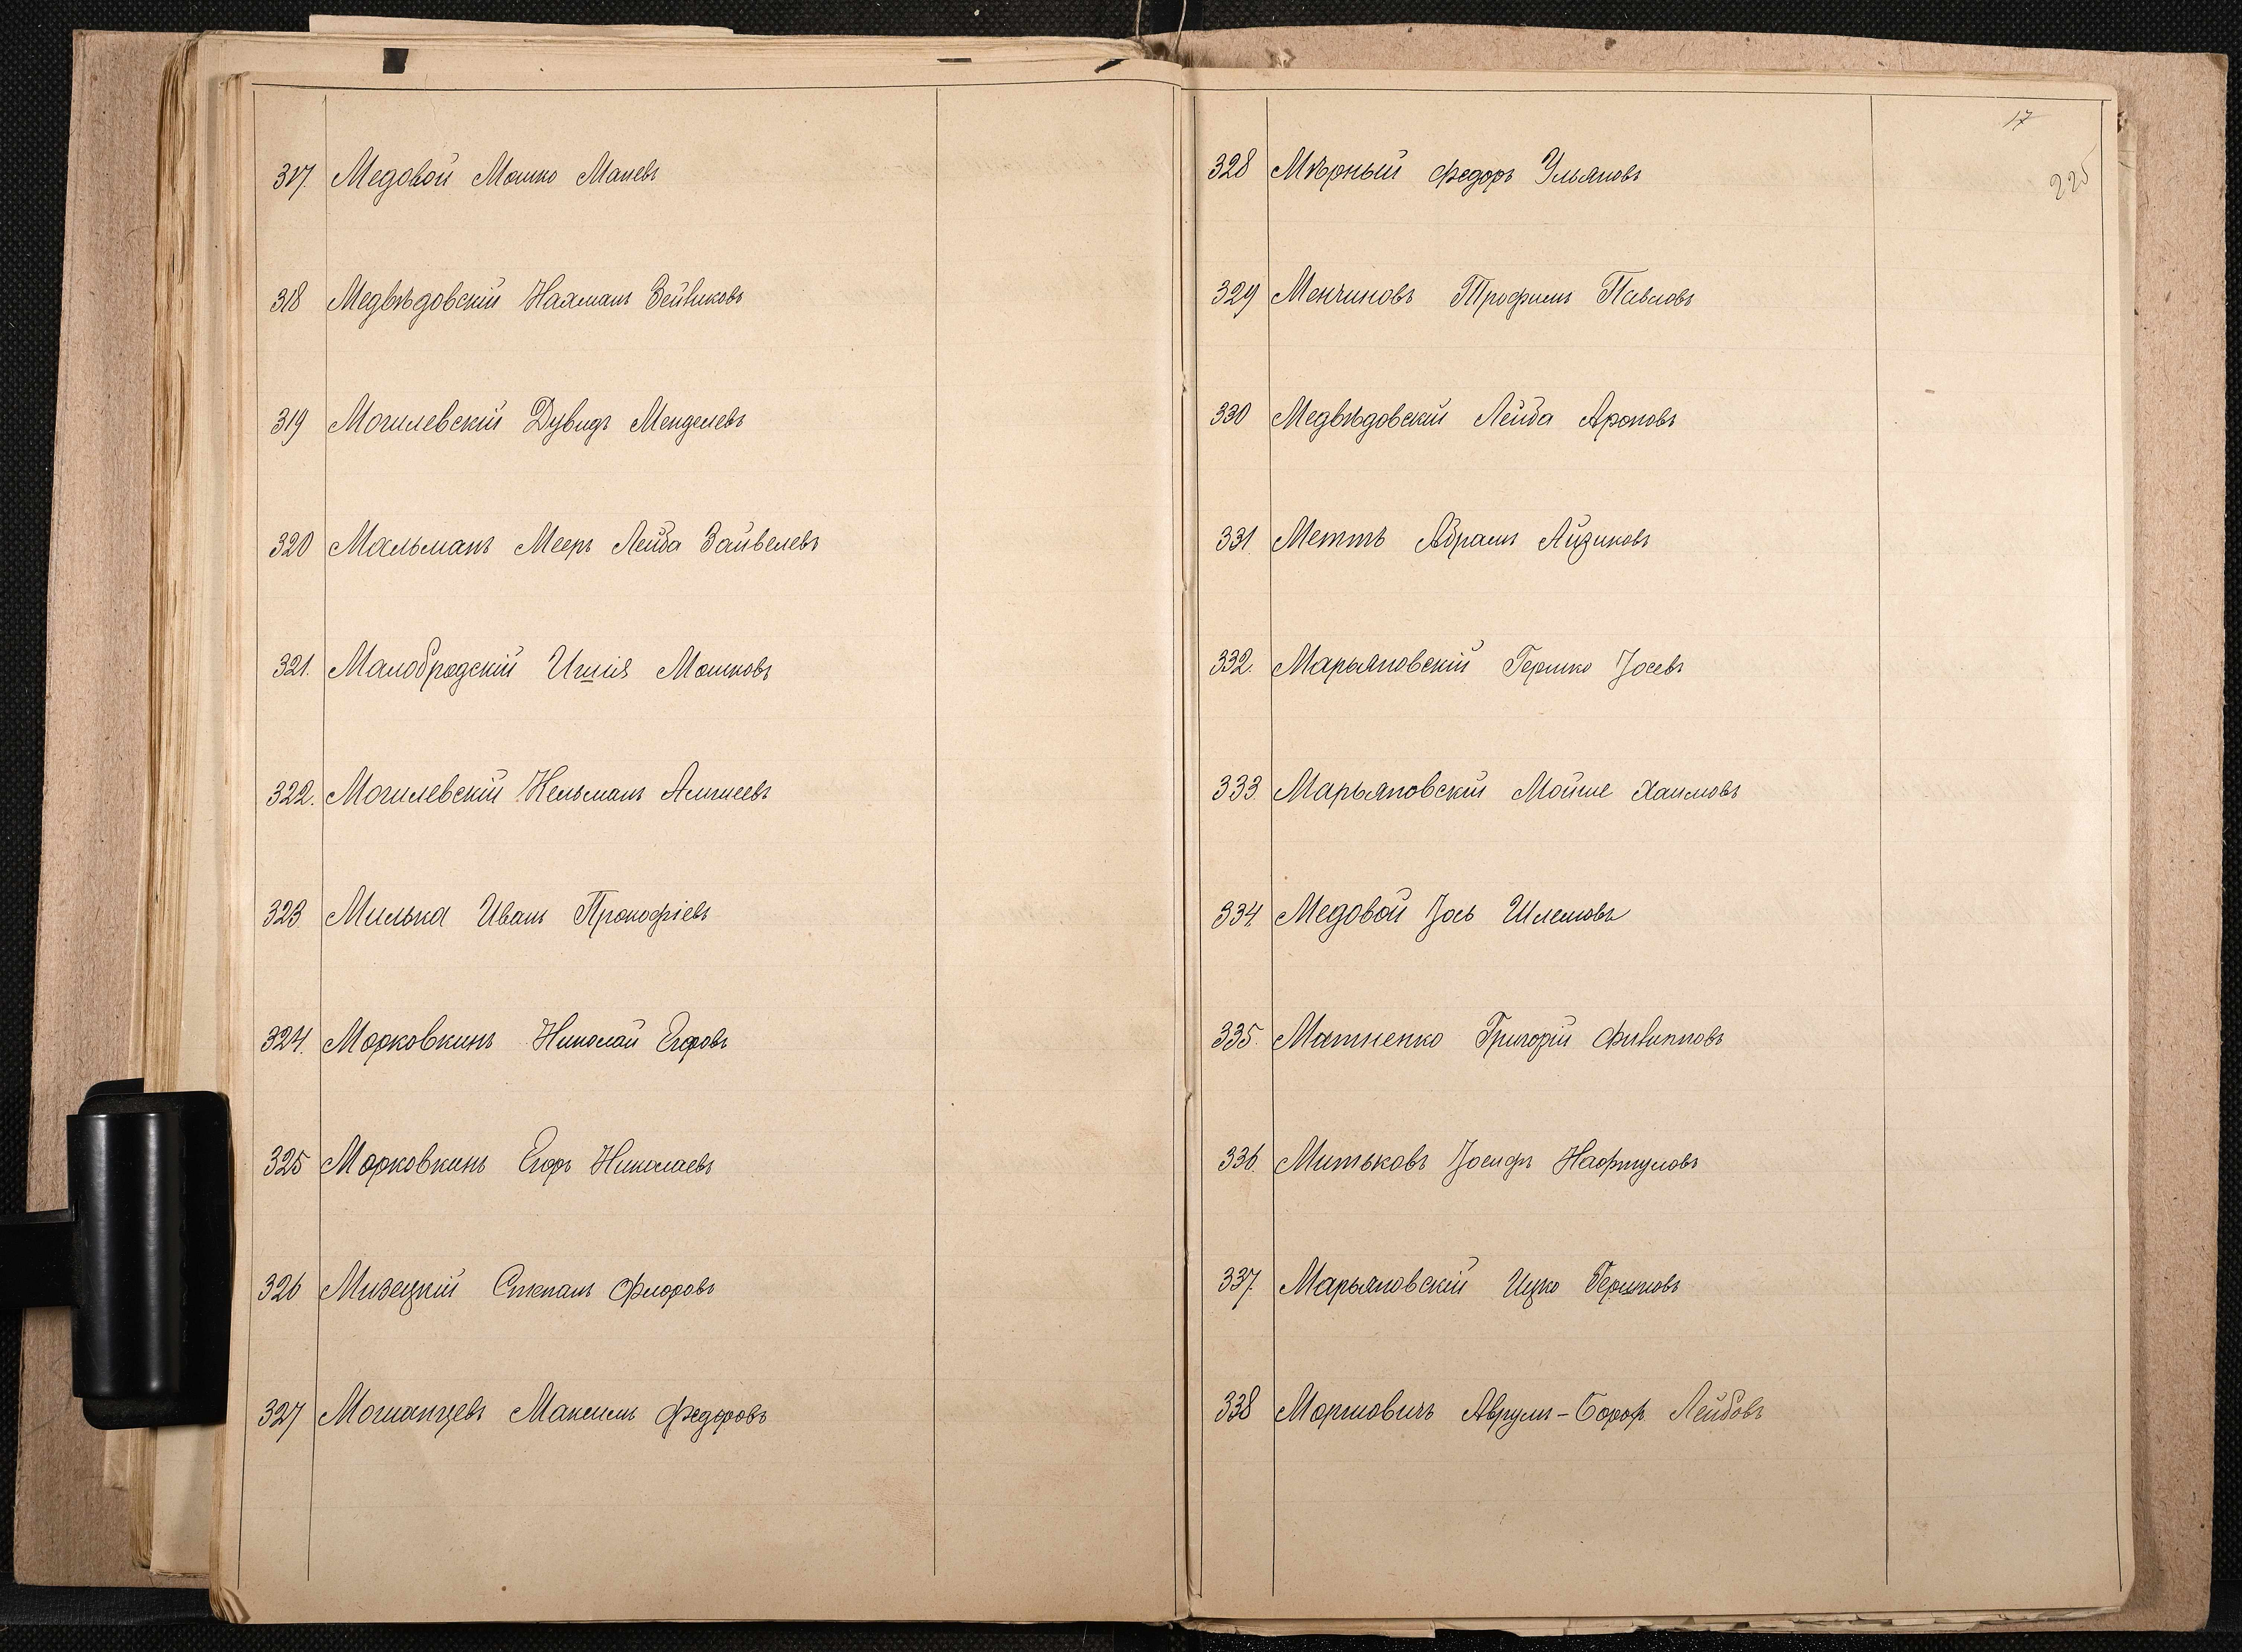 317. Медовой Мошко Маневъ
318 Медвѣдовскій Нахманъ Зейвиковъ
319 Могилевскій Дувидъ Менделевъ
320 Мальманъ Мееръ Лейба Зайвелевъ
321. Малобродскій Ицшія Мошковъ
322. Могилевскій Нельманъ
323. Милька Иванъ Прокофіевъ
324. Морковкинъ Николай Егоровъ
325 Морковкинъ Егоръ Николаевъ
326 Мизецкій Степанъ Флоровъ
327 Мошанцевъ Максимъ Федоровъ
17
225
328 Мѣрный Федоръ Ульяновъ
329 Менчиновъ Трофимъ Павловъ
330 Медвѣдовскій Лейба Ароновъ
331. Меттъ Абрамъ Айзиковъ
332. Марьяновскій Гершко Іосевъ
333. Марьяновскій Мойше Хаимовъ
334. Медовой Іось Шлемовъ
335. Матненко Григорій Филипповъ
336. Митьковъ Іосифъ Нафтуловъ
337. Марьяновскій Ицко Гершковъ
338 Моргиовичъ Аврумъ-Борохъ Лейбовъ